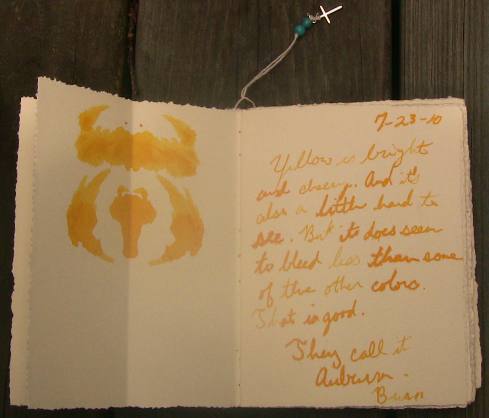 7-23-10
Yellow is bright
and cheery. And it's
also a little hard to
see. But it does seem
to bleed less than some
of the other colors.
That is good.
They call it
Auburn.
Burn